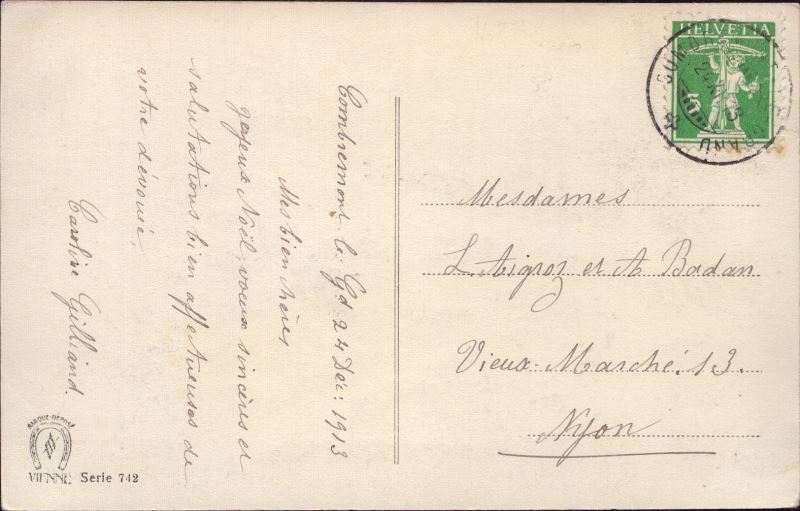 Combremont le Gd 24 Déc: 1913
Mes bien chères
Joyeux Noël, voeux sincères et
salutations bien affectueuses de
votre dévouée,
Caroline Gilliand.
HELVETIA
Mesdames
L. Tigroz et A Badan
Vieux-Marché. 13.
Nyon
MARQUE-DÉPOSÉ
VIENNE
Serie 742